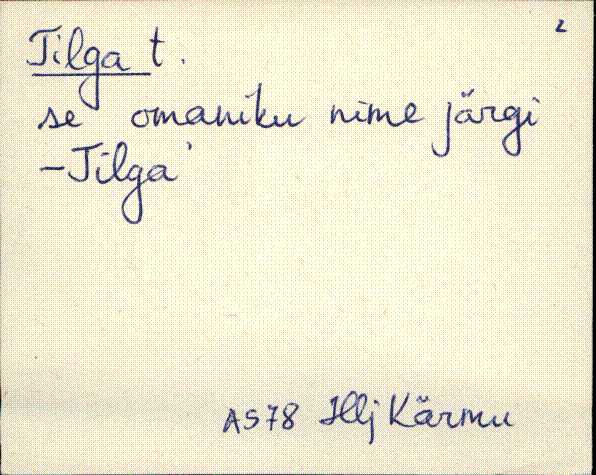 2
Tilga t.
se omaniku nime järgi
-Tilga'
AS78 Hlj Kärmu